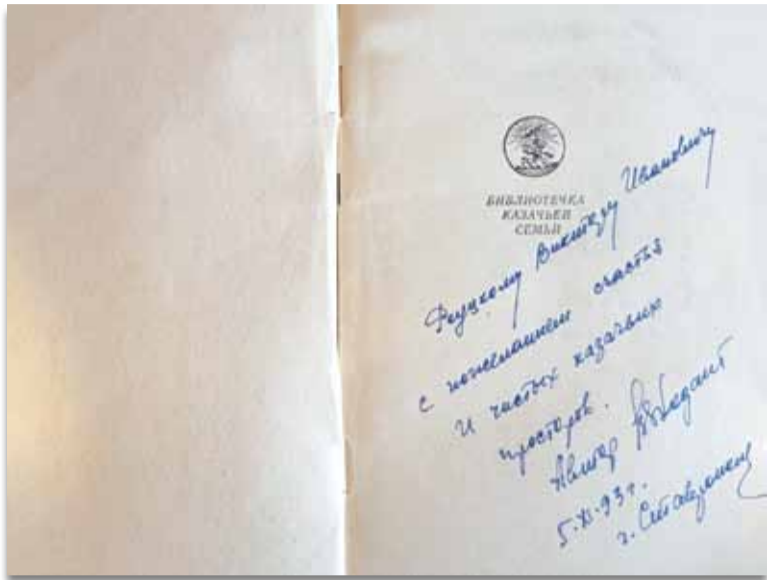 БИБЛИОТЕЧКА
КАЗАЧЬЕЙ
СЕМЬИ
Виктору Ивановичу
с пожеланием счастья
и чистых казачьих
просторов.
Автор
5.XI.93г.
г. Ставрополь